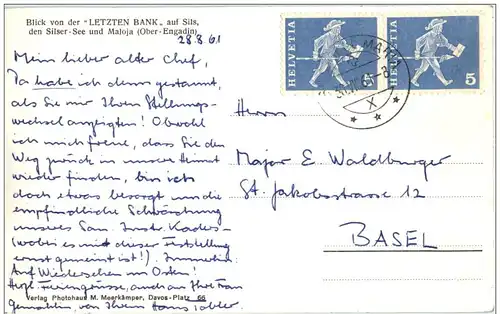 Blick von der "LETZTEN BANK" auf Sils,
den Silser-See und Maloja (Ober-Engadin)
28.8.61
Mein lieber alter Chef,
Da habe ich denn gestaunt,
als Sie mir Ihren Stellungs-
wechsel anzeigten! Obwohl
ich mich freue, dass Sie den
Weg zurück in unsere Heimat
wieder finden, bin ich
doch etwas besorgt um die
empfindliche Schwächung
unseres San. Instr. Kaders
(wobei es mit dieser Feststellung
ernst gemeint ist!). Immerhin:
Auf Wiedersehen im Osten!
Herzl. Feriengrüsse, auch an Ihre Frau
Gemahlin, von Ihrem Hans Tobler.
Verlag Photohaus M. Meerkämper, Davos-Platz 66
HELVETIA
5
HELVETIA
5
X
Herrn
Major E. Waldburger
St. Jakobsstrasse 12
BASEL